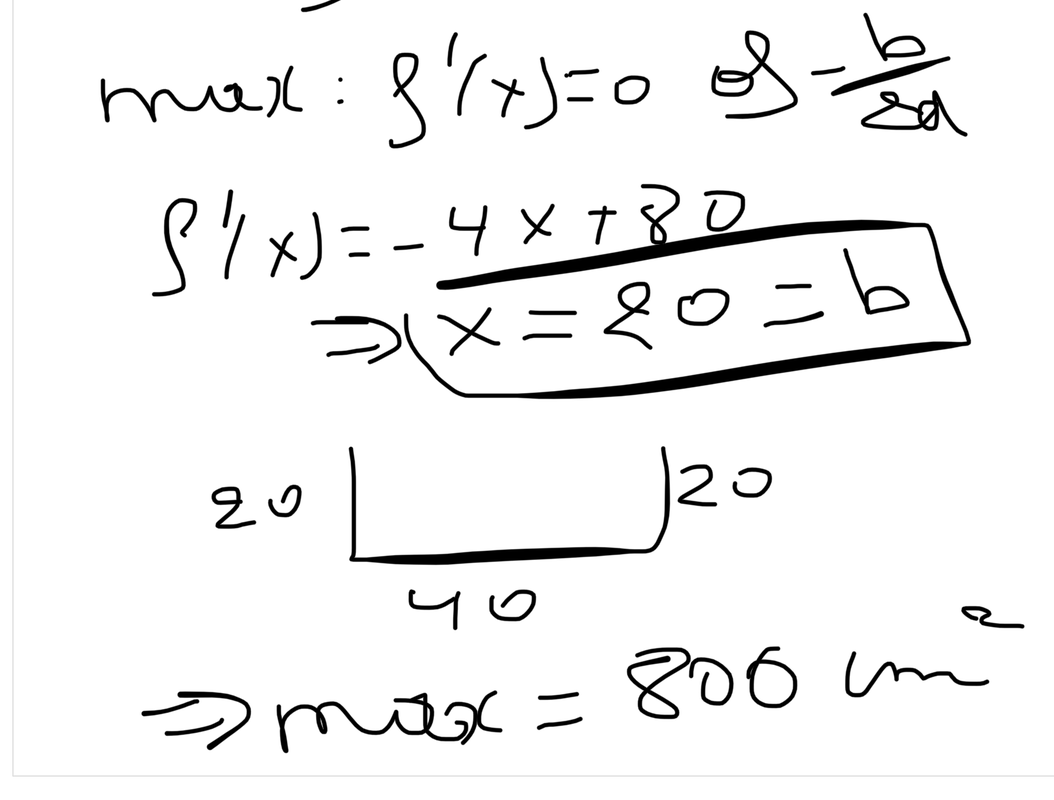 max : f'(x) = 0 of -b/2a
f'(x) = -4x + 80
⇒ x = 20 = b
20 20
40
⇒ max = 800 cm²